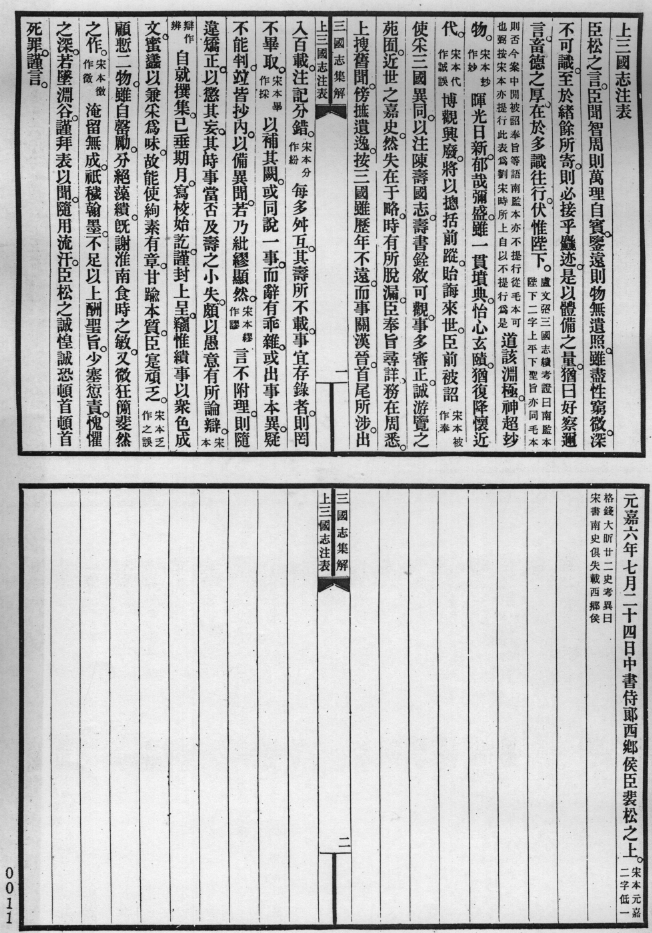 上三國志注表
臣松之言臣聞智周則萬理自賓鑒遠則物無遺照雖盡性窮微深
不可識至於緒餘所寄則必接乎麤迹是以體備之量猶曰好察邇
言畜德之厚在於多識往行伏惟陛下。盧文弨三國志續考證曰南監本陛下二字上平下聖旨亦同毛本
則否今案中閒被詔奉旨等語南監本亦不提行從毛本可也弼按宋本亦提行此表爲劉宋時所上自以不提行爲是道該淵極神超玅
物。宋本玅作妙暉光日新郁哉彌盛雖一貫墳典怡心玄賾猶復降懷近
代。宋本代作誡誤博觀興廢將以摠括前蹤貽誨來世臣前被詔宋本被作奉
使采三國異同以注陳壽國志壽書銓敘可觀事多審正誠游覽之
苑囿近世之嘉史然失在于略時有所脫漏臣奉旨尋詳務在周悉。
上搜舊聞傍摭遺逸按三國雖歷年不遠而事關漢晉首尾所涉出
三國志集解
上三國志注表
一
入百載注記分錯。宋本分作紛每多舛互其壽所不載事宜存錄者則罔
不畢取宋本畢作採以補其闕或同說一事而辭有乖雜或出事本異疑
不能判竝皆抄內以備異聞若乃紕繆顯然。宋本繆作謬言不附理則隨
違矯正以懲其妄其時事當否及壽之小失頗以愚意有所論辯。宋本
辯作辨自就撰集已垂期月寫校始訖謹封上呈竊惟繢事以衆色成
文蜜蠭以兼采爲味故能使絢素有章甘踰本質臣寔頑乏。宋本乏作之誤
顧慙二物雖自罄勵分絕藻繢旣謝淮南食時之敏又微狂簡斐然
之作。宋本微作徵淹留無成祗穢翰墨不足以上酬聖旨少塞愆責愧懼
之深若墜淵谷謹拜表以聞隨用流汗臣松之誠惶誠恐頓首頓首
死罪謹言。
元嘉六年七月二十四日中書侍郎西鄉侯臣裴松之上。宋本元嘉二字低一
格錢大昕廿二史考異曰宋書南史俱失載西鄉侯
三國志集解
上三國志注表
二
0011